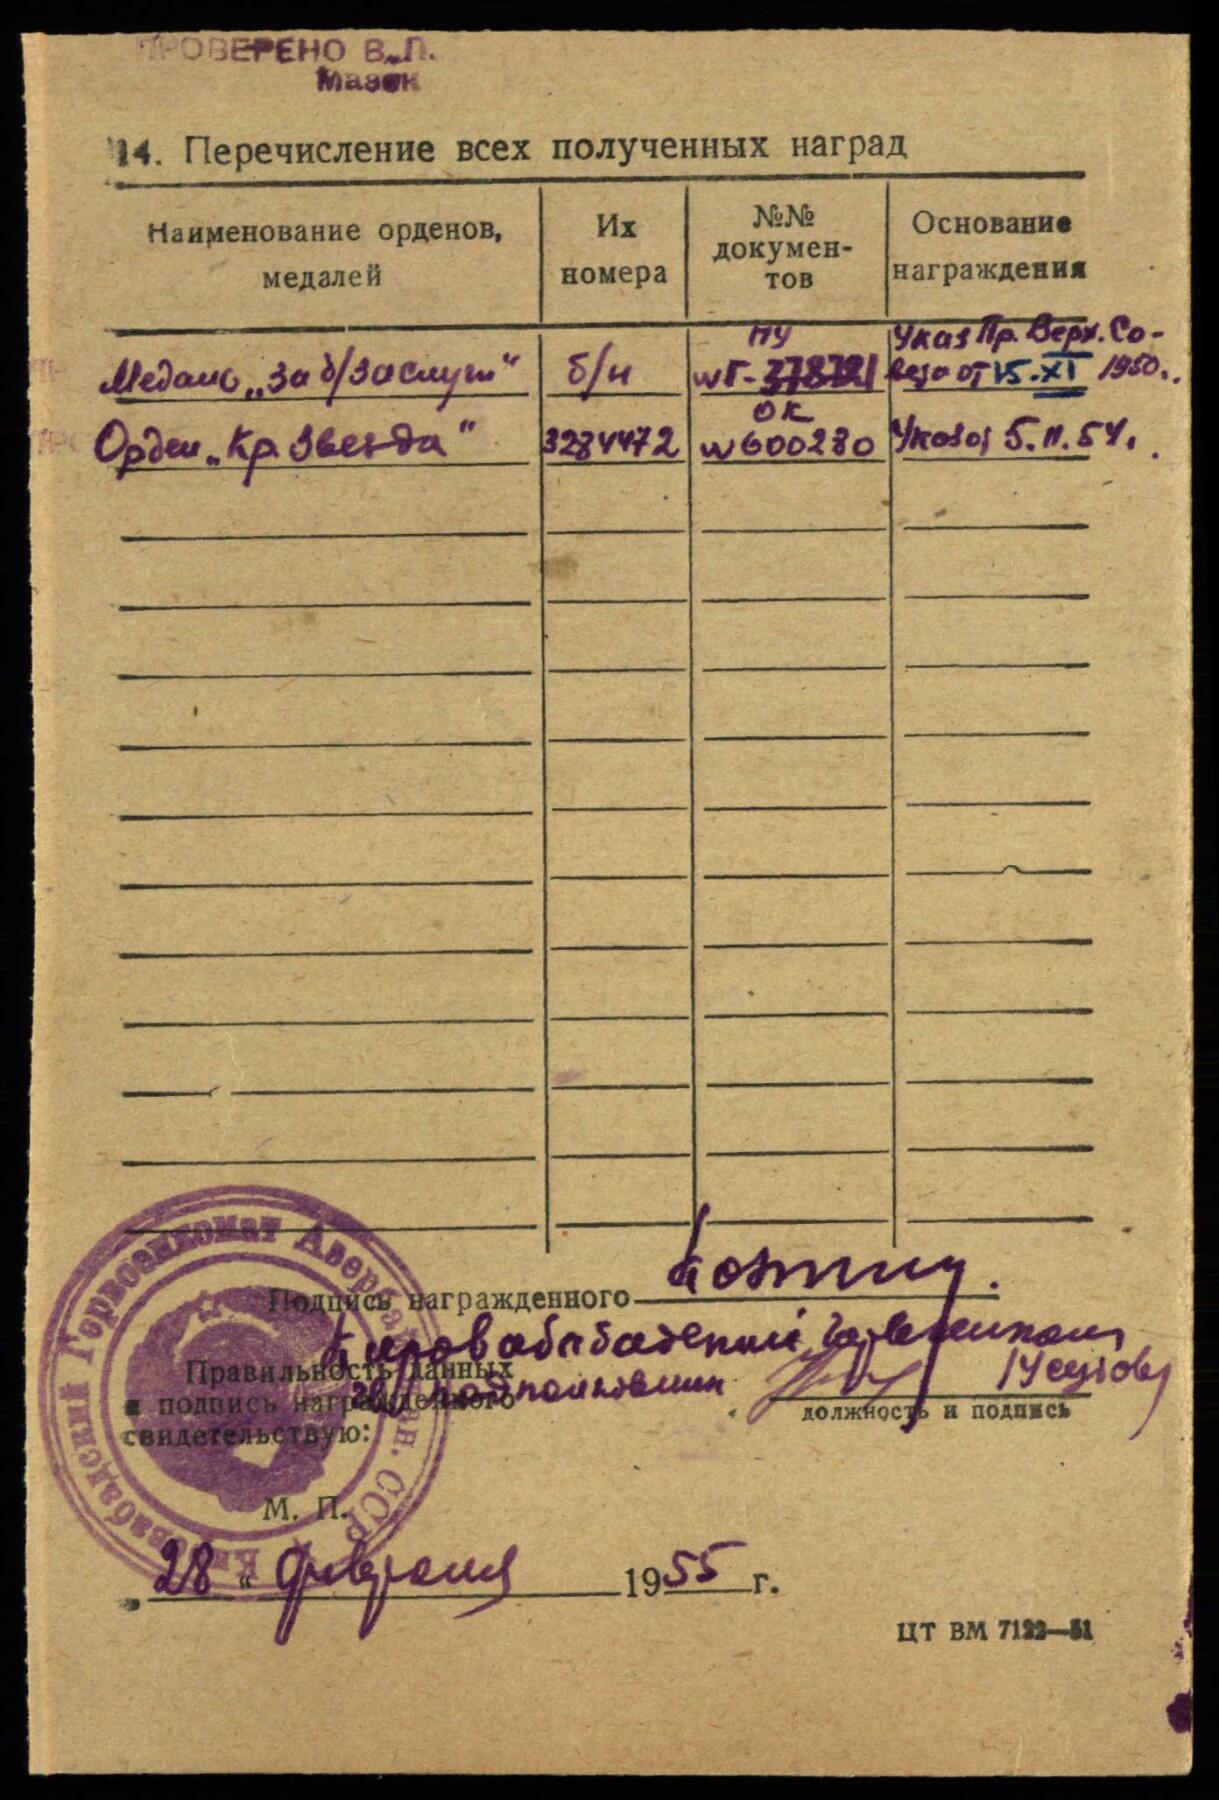 ПРОВЕРЕНО В.П.
14. Перечисление всех полученных наград
Наименование орденов, медалей
Их номера
№№ докумен-
тов
Основание награждения
Медаль „За б/заслуги“ б/н ПУ №Г- Указ Пр. Верх. Со-
вета от 15.XI 1950.
Орден „Кр. Звезда“ 3284472 ОК №600280 Указ от 5.11.54.
Подпись награжденного
Кировабадский Горвоенком
Правильность данных
подполковник
и подпись награжденного
должность и подпись
свидетельствую:
М. П.
Кировабадский Горвоенкомат Азербайджан. ССР
28 “ февраля 1955 г.
ЦТ ВМ 7122—51